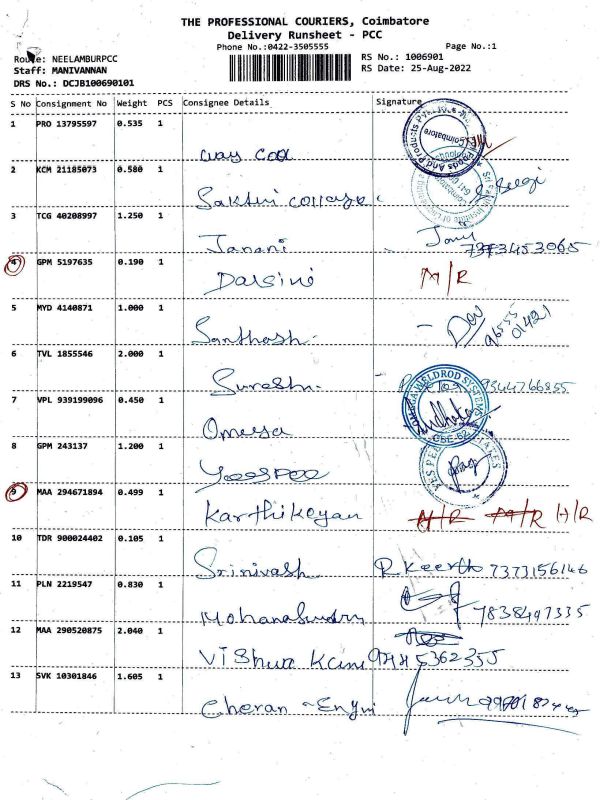 THE PROFESSIONAL COURIERS, Coimbatore
Delivery Runsheet - PCC
Phone No.:0422-3505555 Page No.:1
Route: NEELAMBURPCC RS No.: 1006901
Staff: MANIVANNAN RS Date: 25-Aug-2022
DRS No.: DCJB100690101
S No Consignment No Weight PCS Consignee Details Signature
1 PRO 13795597 0.535 1
way cool
2 KCM 21185073 0.580 1
Sakthi College
3 TCG 40208997 1.250 1
Janani
4 GPM 5197635 0.190 1
Darsini N/R
5 MYD 4140871 1.000 1
Santhosh
6 TVL 1855546 2.000 1
Suresh 9344766855
7 VPL 939199096 0.450 1
OMEGA WELDROD SYSTEMS
CBE-62
Omega
8 GPM 243137 1.200 1
9 MAA 294671894 0.499 1
Karthikeyan
10 TDR 900024402 0.105 1
Srinivash R.Keerth 7373156146
11 PLN 2219547 0.830 1
7838497335
12 MAA 290520875 2.040 1
Vishwa
13 SVK 10301846 1.605 1
Cheran